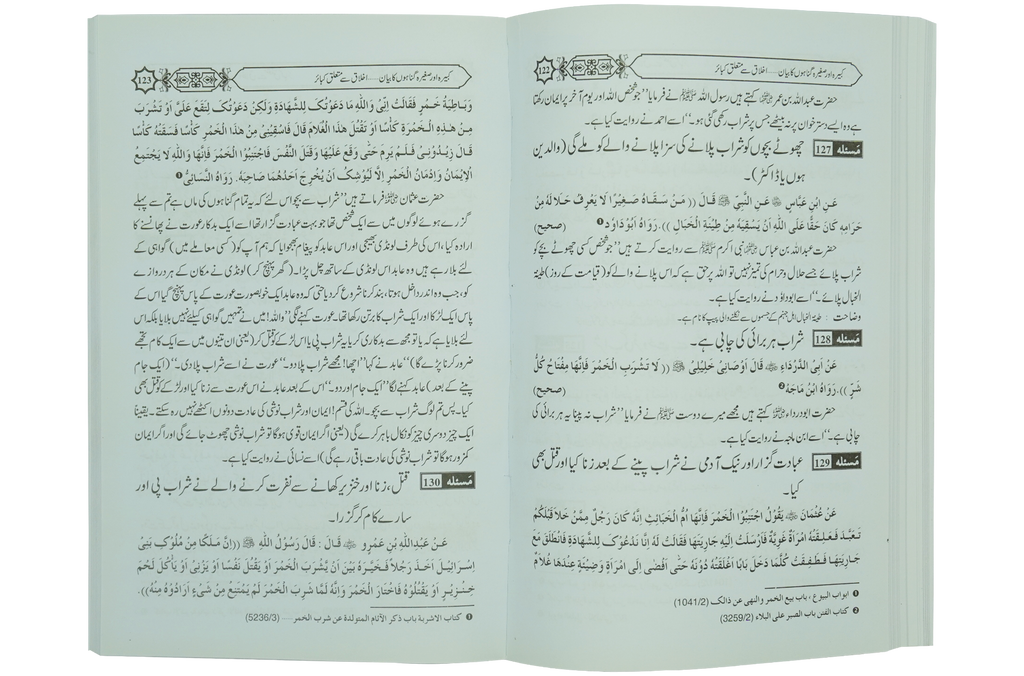 کبیرہ اور صغیرہ گناہوں کا بیان ---- اخلاق سے متعلق کبائر
122
حضرت عبداللہ بن عمر ﷺ کہتے ہیں رسول اللہ ﷺ نے فرمایا ”جو شخص اللہ اور یوم آخر پر ایمان رکھتا
ہے وہ ایسے دسترخوان پر نہ بیٹھے جس پر شراب رکھی گئی ہو۔“ اسے احمد نے روایت کیا ہے۔
مَسئله 127 چھوٹے بچوں کو شراب پلانے کی سزا پلانے والے کو ملے گی (والدین
ہوں یا ڈاکٹر)۔
عَنِ ابْنِ عَبَّاسٍ ﷺ عَنِ النَّبِيِّ ﷺ قَالَ (( مَنْ سَقَاهُ صَغِيْرًا لَا يَعْرِفُ حَلَالَهُ مِنْ
حَرَامِهِ كَانَ حَقًّا عَلَى اللّٰهِ اَنْ يَسْقِيَهُ مِنْ طِيْنَةِ الْخَبَالِ )). رَوَاهُ اَبُوْدَاوٗدَ ❶ (صحيح)
حضرت عبداللہ بن عباس ﷺ نبی اکرم ﷺ سے روایت کرتے ہیں ”جو شخص کسی چھوٹے بچے کو
شراب پلائے جسے حلال و حرام کی تمیز نہیں تو اللہ پر حق ہے کہ اس پلانے والے کو (قیامت کے روز) طینۃ
الخبال پلائے۔“ اسے ابوداؤد نے روایت کیا ہے۔
وضاحت : طینۃ الخبال اہل جہنم کے جسموں سے نکلنے والی پیپ کا نام ہے۔
مَسئله 128 شراب ہر برائی کی چابی ہے۔
عَنْ اَبِي الدَّرْدَاءِ ﷺ قَالَ اَوْصَانِيْ خَلِيْلِيْ ﷺ (( لَا تَشْرَبِ الْخَمْرَ فَاِنَّهَا مِفْتَاحُ كُلِّ
شَرٍّ )). رَوَاهُ ابْنُ مَاجَهْ ❷ (صحيح)
حضرت ابودرداء ﷺ کہتے ہیں مجھے میرے دوست ﷺ نے فرمایا ”شراب نہ پینا یہ ہر برائی کی
چابی ہے۔“ اسے ابن ماجہ نے روایت کیا ہے۔
مَسئله 129 عبادت گزار اور نیک آدمی نے شراب پینے کے بعد زنا کیا اور قتل بھی
کیا۔
عَنْ عُثْمَانَ ﷺ يَقُوْلُ اجْتَنِبُوا الْخَمْرَ فَاِنَّهَا اُمُّ الْخَبَائِثِ اِنَّهُ كَانَ رَجُلٌ مِمَّنْ خَلَا قَبْلَكُمْ
تَعَبَّدَ فَعَلِقَتْهُ امْرَأَةٌ غَوِيَّةٌ فَاَرْسَلَتْ اِلَيْهِ جَارِيَتَهَا فَقَالَتْ لَهُ اِنَّا نَدْعُوْكَ لِلشَّهَادَةِ فَانْطَلَقَ مَعَ
جَارِيَتِهَا فَطَفِقَتْ كُلَّمَا دَخَلَ بَابًا اَغْلَقَتْهُ دُوْنَهُ حَتّٰى اَفْضٰى اِلَى امْرَأَةٍ وَضِيْئَةٍ عِنْدَهَا غُلَامٌ
❶ ابواب البيوع ، باب بيع الخمر والنهى عن ذالك (1041/2)
❷ كتاب الفتن باب الصبر على البلاء (3259/2)
کبیرہ اور صغیرہ گناہوں کا بیان ---- اخلاق سے متعلق کبائر
123
وَبَاطِيَةُ خَمْرٍ فَقَالَتْ اِنِّيْ وَاللّٰهِ مَا دَعَوْتُكَ لِلشَّهَادَةِ وَلٰكِنْ دَعَوْتُكَ لِتَقَعَ عَلَيَّ اَوْ تَشْرَبَ
مِنْ هٰذِهِ الْخَمْرَةِ كَأْسًا اَوْ تَقْتُلَ هٰذَا الْغُلَامَ قَالَ فَاسْقِيْنِيْ مِنْ هٰذَا الْخَمْرِ كَأْسًا فَسَقَتْهُ كَأْسًا
قَالَ زِيْدُوْنِيْ فَلَمْ يَرِمْ حَتّٰى وَقَعَ عَلَيْهَا وَقَتَلَ النَّفْسَ فَاجْتَنِبُوا الْخَمْرَ فَاِنَّهَا وَاللّٰهِ لَا يَجْتَمِعُ
الْاِيْمَانُ وَاِدْمَانُ الْخَمْرِ اِلَّا لَيُوْشِكُ اَنْ يُخْرِجَ اَحَدُهُمَا صَاحِبَهُ. رَوَاهُ النَّسَائِيُّ ❶
حضرت عثمان ﷺ فرماتے ہیں ”شراب سے بچو اس لئے کہ یہ تمام گناہوں کی ماں ہے تم سے پہلے
گزرے ہوئے لوگوں میں سے ایک شخص تھا جو بہت عبادت گزار تھا اسے ایک بدکار عورت نے پھانسنے کا
ارادہ کیا، اس کی طرف لونڈی بھیجی اور اس عابد کو پیغام بھجوایا کہ ہم آپ کو (کسی معاملے میں) گواہی کے
لئے بلا رہے ہیں وہ عابد اس لونڈی کے ساتھ چل پڑا۔ (گھر پہنچ کر) لونڈی نے مکان کے ہر دروازے
کو، جب وہ اندر داخل ہوتا، بند کرنا شروع کر دیا حتی کہ وہ عابد ایک خوبصورت عورت کے پاس پہنچ گیا اس کے
پاس ایک لڑکا اور ایک شراب کا برتن رکھا تھا، عورت کہنے لگی ”واللہ! میں نے تمہیں گواہی کیلئے نہیں بلایا بلکہ اس
لئے بلایا ہے کہ یا تو مجھ سے بدکاری کر یا یہ شراب پی یا اس لڑکے کو قتل کر (یعنی ان تینوں میں سے ایک کام تجھے
ضرور کرنا پڑے گا)“ عابد نے کہا ”اچھا! مجھے شراب پلا دو۔“ عورت نے اسے شراب پلا دی۔“ (ایک جام
پینے کے بعد) عابد کہنے لگا ”ایک جام اور دو۔“ اس کے بعد عابد نے اس عورت سے زنا کیا اور لڑکے کو قتل بھی
کیا۔ پس تم لوگ شراب سے بچو۔ اللہ کی قسم! ایمان اور شراب نوشی کی عادت دونوں اکٹھے نہیں رہ سکتے۔ یقیناً
ایک چیز دوسری چیز کو نکال باہر کرے گی (یعنی اگر ایمان قوی ہوگا تو شراب نوشی چھوٹ جائے گی اور اگر ایمان
کمزور ہوگا تو شراب نوشی کی عادت باقی رہے گی) اسے نسائی نے روایت کیا ہے۔
مَسئله 130 قتل، زنا اور خنزیر کھانے سے نفرت کرنے والے نے شراب پی اور
سارے کام کر گزرا۔
عَنْ عَبْدِاللّٰهِ بْنِ عَمْرٍو ﷺ قَالَ : قَالَ رَسُوْلُ اللّٰهِ ﷺ ((اِنَّ مَلَكًا مِنْ مُلُوْكِ بَنِيْ
اِسْرَائِيْلَ اَخَذَ رَجُلًا فَخَيَّرَهُ بَيْنَ اَنْ يَّشْرَبَ الْخَمْرَ اَوْ يَقْتُلَ نَفْسًا اَوْ يَزْنِيَ اَوْ يَأْكُلَ لَحْمَ
خِنْزِيْرٍ اَوْ يَقْتُلُوْهُ فَاخْتَارَ الْخَمْرَ وَاِنَّهُ لَمَّا شَرِبَ الْخَمْرَ لَمْ يَمْتَنِعْ مِنْ شَيْءٍ اَرَادُوْهُ مِنْهُ)).
❶ كتاب الاشربة باب ذكر الآثام المتولدة عن شرب الخمر ---- (5236/3)